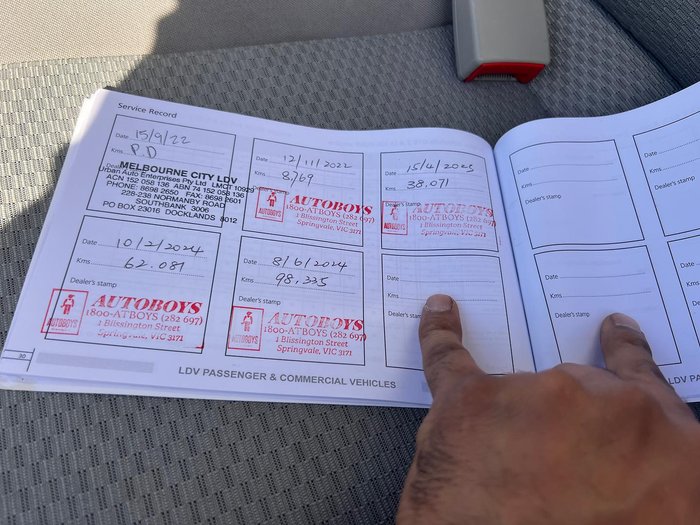 Service Record
Date 15/9/22
Kms P.D
Dealer's stamp
MELBOURNE CITY LDV
Urban Auto Enterprises Pty Ltd LMCT 10929
ACN 152 058 136 ABN 74 152 058 136
PHONE: 8698 2650 FAX: 8698 2601
228-238 NORMANBY ROAD
SOUTHBANK 3006
PO BOX 23016 DOCKLANDS 8012
Date 12/11/2022
Kms 8,769
Dealer's stamp
AUTOBOYS
AUTOBOYS
1800-ATBOYS (282 697)
1 Blissington Street
Springvale, VIC 3171
Date 15/4/2023
Kms 38,071
Dealer's stamp
AUTOBOYS
AUTOBOYS
1800-ATBOYS (282 697)
1 Blissington Street
Springvale, VIC 3171
Date 10/2/2024
Kms 62.081
Dealer's stamp
AUTOBOYS
AUTOBOYS
1800-ATBOYS (282 697)
1 Blissington Street
Springvale, VIC 3171
Date 8/6/2024
Kms 98,335
Dealer's stamp
AUTOBOYS
AUTOBOYS
1800-ATBOYS (282 697)
1 Blissington Street
Springvale, VIC 3171
Date
Kms
Dealer's stamp
30
LDV PASSENGER & COMMERCIAL VEHICLES
Date
Kms
Dealer's stamp
Date
Kms
Dealer's stamp
Date
Kms
Dealer's stamp
Date
Kms
Dealer's
LDV PA